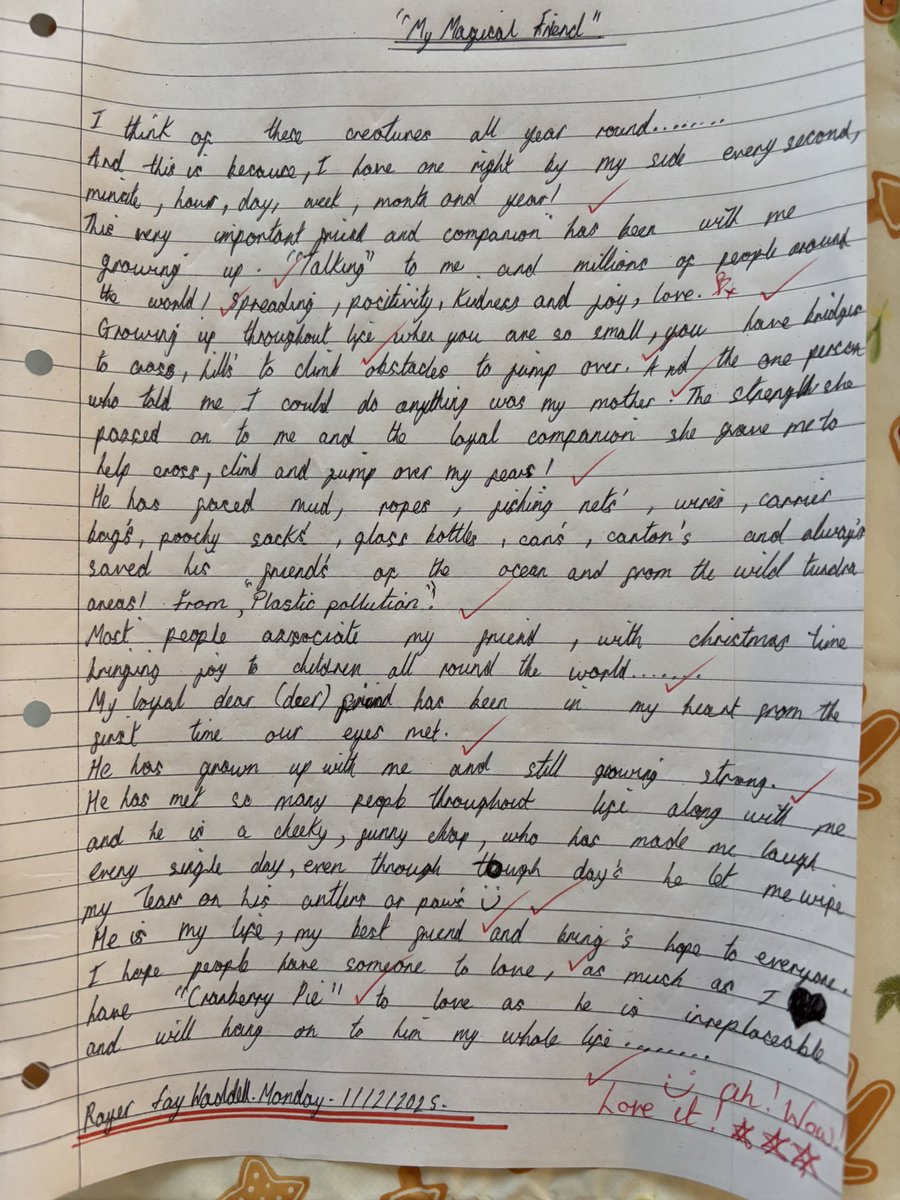 "My Magical Friend"
I think of these creatures all year round........
And this is because, I have one right by my side every second,
minute, hour, day, week, month and year!
This very important friend and companion" has been with me
growing up. "Talking" to me and millions of people around
the world! Spreading, positivity, kidness and joy, love.
Growing up throughout life when you are so small, you have bridges
to cross, hills to climb obstacles to jump over. And the one person
who told me I could do anything was my mother. The strength she
passed on to me and the loyal companion she grave me to
help cross, climb and jump over my fears!
He has faced mud, ropes, fishing nets', wires, carrier
bag's, poochy sacks', glass bottles, can's, carton's and always
saved his friend's of the ocean and from the wild tundra
areas! From, "Plastic pollution"!
Most people associate my friend, with christmas time
bringing joy to children all round the world........
My loyal dear (deer) friend has been in my heart from the
first time our eyes met.
He has grown up with me and still growing strong.
He has met so many people throughout life along with me
and he is a cheeky, funny chap, who has made me laugh
every single day, even through tough day's he let me wipe
my tears on his antlers or paw's
He is my life, my best friend and bring's hope to everyone.
I hope people have someone to love, as much as I
have "Cranberry Pie" to love as he is irreplaceable
and will hang on to him my whole life........
Ah! Wow!
Love it!
Rayer Fay Waddell. Monday. 1/12/2025.